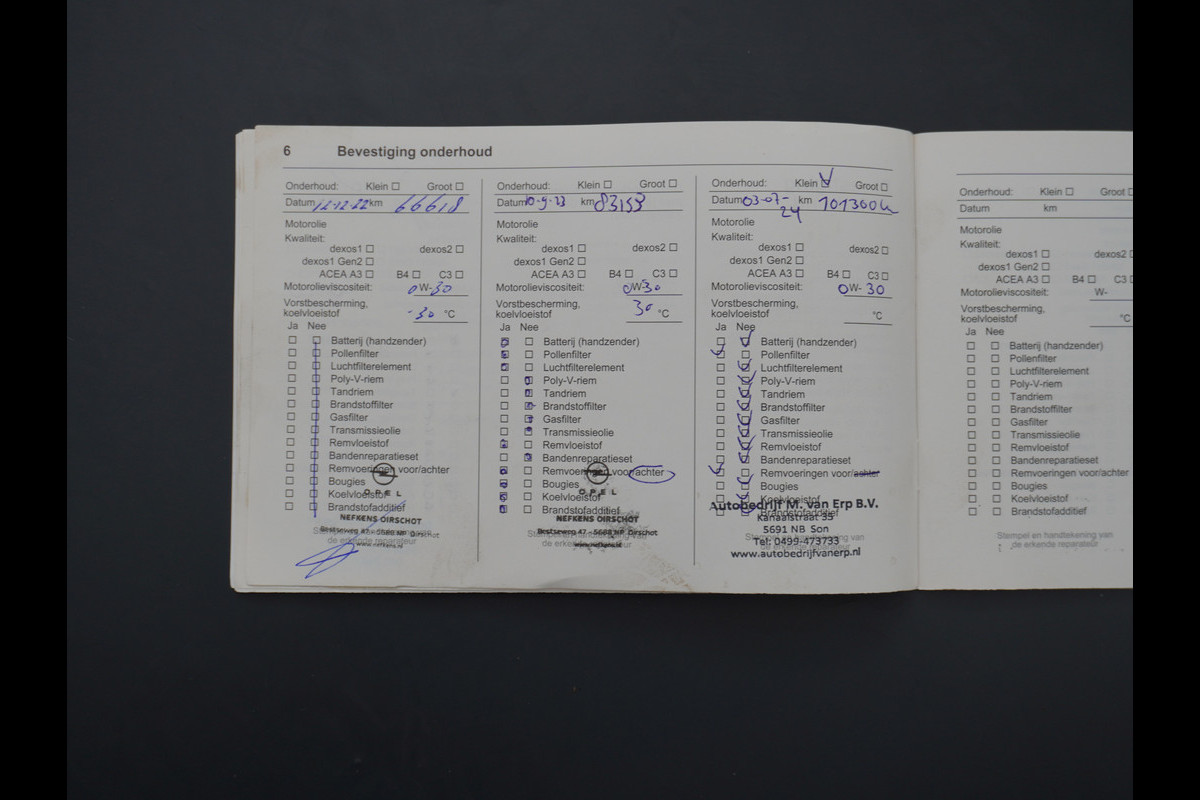 6 Bevestiging onderhoud
Onderhoud: Klein Groot
Datum 12-12-22 km 66618
Motorolie
Kwaliteit:
dexos1 dexos2
dexos1 Gen2
ACEA A3 B4 C3
Motorolieviscositeit: 0W-30
Vorstbescherming,
koelvloeistof -30 °C
Ja Nee
Batterij (handzender)
Pollenfilter
Luchtfilterelement
Poly-V-riem
Tandriem
Brandstoffilter
Gasfilter
Transmissieolie
Remvloeistof
Bandenreparatieset
Remvoeringen voor/achter
Bougies
Koelvloeistof
Brandstofadditief
OPEL
NEFKENS OIRSCHOT
Bestseweg 47 - 5688 NP Oirschot
www.nefkens.nl
Onderhoud: Klein Groot
Datum 10-9-23 km 83159
Motorolie
Kwaliteit:
dexos1 dexos2
dexos1 Gen2
ACEA A3 B4 C3
Motorolieviscositeit: 0W-30
Vorstbescherming,
koelvloeistof 30 °C
Ja Nee
Batterij (handzender)
Pollenfilter
Luchtfilterelement
Poly-V-riem
Tandriem
Brandstoffilter
Gasfilter
Transmissieolie
Remvloeistof
Bandenreparatieset
Remvoeringen voor/achter
Bougies
Koelvloeistof
Brandstofadditief
OPEL
NEFKENS OIRSCHOT
Bestseweg 47 - 5688 NP Oirschot
de erkende reparateur
www.nefkens.nl
Onderhoud: Klein Groot
Datum 03-07-24 km 101300
Motorolie
Kwaliteit:
dexos1 dexos2
dexos1 Gen2
ACEA A3 B4 C3
Motorolieviscositeit: 0W-30
Vorstbescherming,
koelvloeistof °C
Ja Nee
Batterij (handzender)
Pollenfilter
Luchtfilterelement
Poly-V-riem
Tandriem
Brandstoffilter
Gasfilter
Transmissieolie
Remvloeistof
Bandenreparatieset
Remvoeringen voor/achter
Bougies
Koelvloeistof
Autobedrijf M. van Erp B.V.
Brandstofadditief
Kanaalstraat 35
5691 NB Son
Tel: 0499-473733
Stempel en handtekening van
de erkende reparateur
www.autobedrijfvanerp.nl
Onderhoud: Klein Groot
Datum km
Motorolie
Kwaliteit:
dexos1 dexos2
dexos1 Gen2
ACEA A3 B4 C3
Motorolieviscositeit: W-
Vorstbescherming,
koelvloeistof °C
Ja Nee
Batterij (handzender)
Pollenfilter
Luchtfilterelement
Poly-V-riem
Tandriem
Brandstoffilter
Gasfilter
Transmissieolie
Remvloeistof
Bandenreparatieset
Remvoeringen voor/achter
Bougies
Koelvloeistof
Brandstofadditief
Stempel en handtekening van
de erkende reparateur